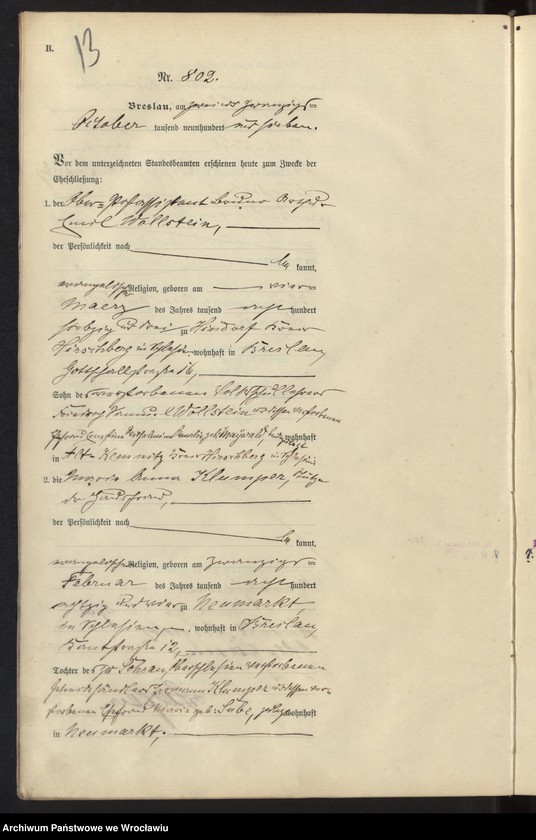 B.
13
Nr. 802.
Breslau, am zwei und zwanzigsten
October tausend neunhundert und sieben.
Vor dem unterzeichneten Standesbeamten erschienen heute zum Zwecke der
Eheschließung:
1. der Ober-Postassistent Bruno
Emil Wollstein,
der Persönlichkeit nach
be kannt,
evangelischer Religion, geboren am vierten
Maerz des Jahres tausend acht hundert
siebzig und drei zu Kreis
Hirschberg in Schlesien, wohnhaft in Breslau,
Gottschallstraße 16,
Sohn des verstorbenen Volksschullehrers
Wollstein und dessen verstorbenen
Ehefrau Ernestine geb. wohnhaft
in Alt-Kemnitz Kreis Hirschberg in Schlesien
2. die Maria Anna Klumper, Stütze
der Hausfrau,
der Persönlichkeit nach
be kannt,
evangelischer Religion, geboren am zwanzigsten
Februar des Jahres tausend acht hundert
achtzig und vier zu Neumarkt
in Schlesien, wohnhaft in Breslau,
straße 12,
Tochter des zu Sohrau, Oberschlesien verstorbenen
Getreidehändlers Hermann Klumper und dessen ver-
storbenen Ehefrau Maria geb. zuletzt wohnhaft
in Neumarkt.
Archiwum Państwowe we Wrocławiu